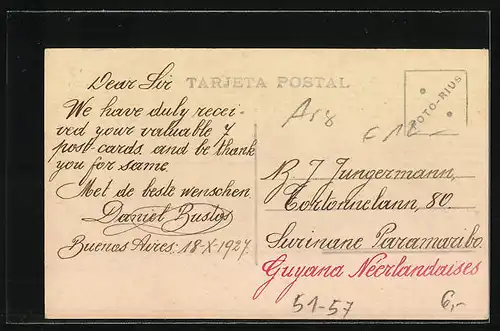 Dear Sir
TARJETA POSTAL
We have duly recei-
ved your valuable 7
post-cards and be thank
you for same.
Met de beste wenschen
Daniel Bustos
Buenos Aires 18-X-1927.
FOTO-RIUS
Arg
R. J. Jungermann,
Tortonnelann, 80.
Surinane Paramaribo.
Guyana Néerlandaises
51-57
6,-